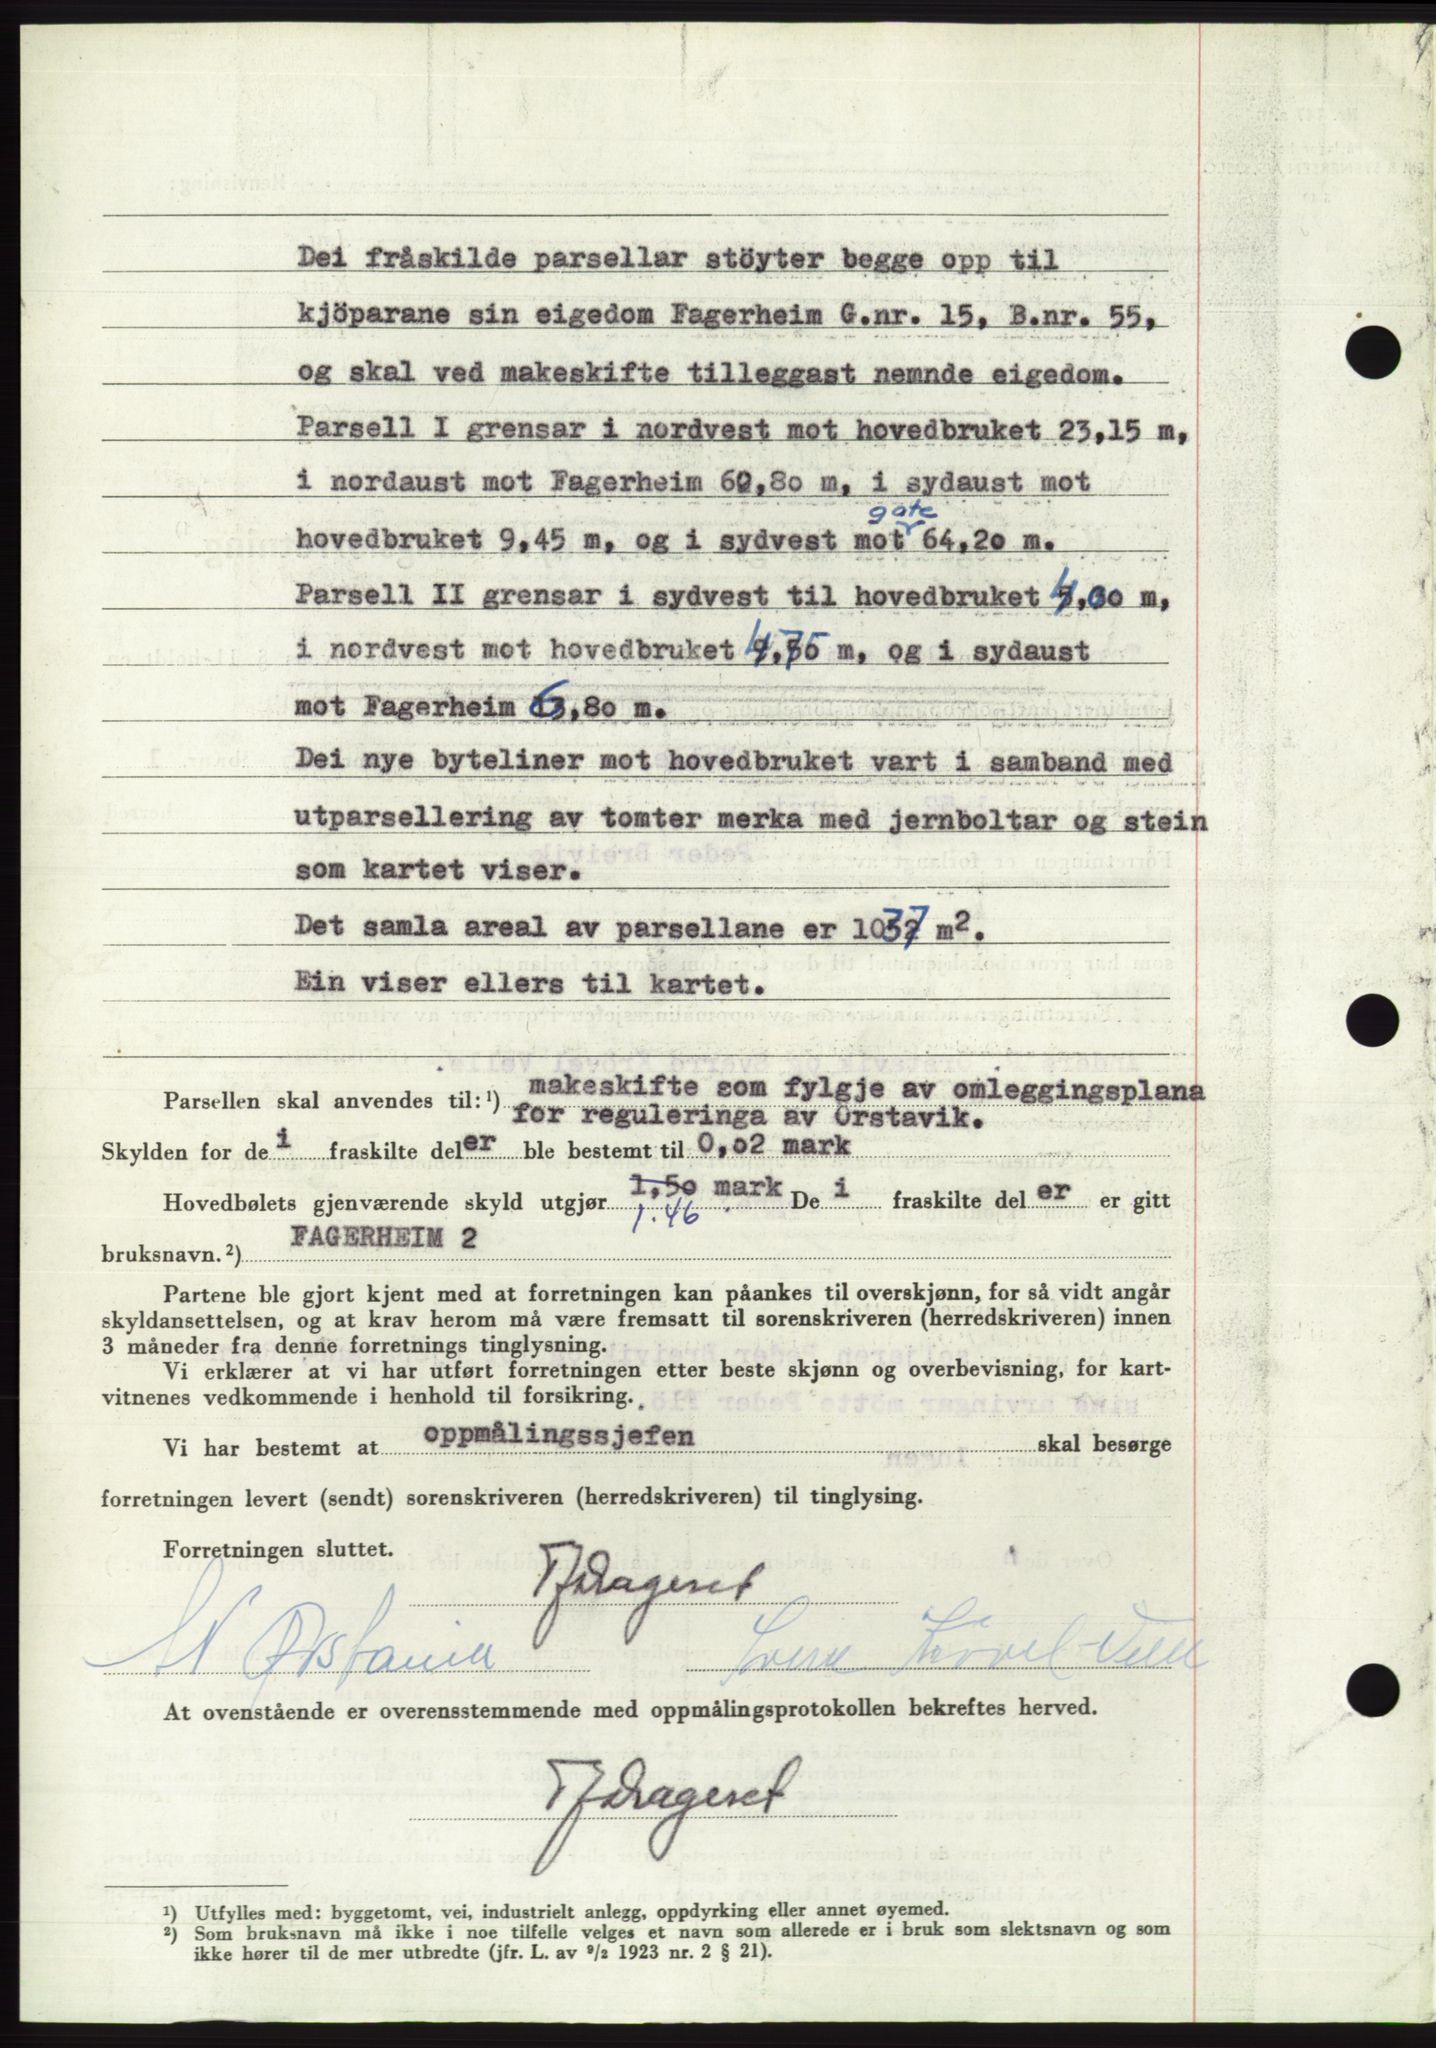 Dei fråskilde parsellar stöyter begge opp til
kjöparane sin eigedom Fagerheim G.nr. 15, B.nr. 55,
og skal ved makeskifte tilleggast nemnde eigedom.
Parsell I grensar i nordvest mot hovedbruket 23,15 m,
i nordaust mot Fagerheim 60,80 m, i sydaust mot
gate
hovedbruket 9,45 m, og i sydvest mot 64,20 m.
Parsell II grensar i sydvest til hovedbruket 4,00 m,
i nordvest mot hovedbruket 4,75 m, og i sydaust
mot Fagerheim 6,80 m.
Dei nye byteliner mot hovedbruket vart i samband med
utparsellering av tomter merka med jernboltar og stein
som kartet viser.
Det samla areal av parsellane er 1037 m².
Ein viser ellers til kartet.
makeskifte som fylgje av omleggingsplana
Parsellen skal anvendes til: ¹)
for reguleringa av Örstavik.
Skylden for de i fraskilte deler ble bestemt til 0,02 mark
Hovedbølets gjenværende skyld utgjør 1,50 mark De i fraskilte del er er gitt
1.46
bruksnavn. ²) FAGERHEIM 2
Partene ble gjort kjent med at forretningen kan påankes til overskjønn, for så vidt angår
skyldansettelsen, og at krav herom må være fremsatt til sorenskriveren (herredskriveren) innen
3 måneder fra denne forretnings tinglysning.
Vi erklærer at vi har utført forretningen etter beste skjønn og overbevisning, for kart-
vitnenes vedkommende i henhold til forsikring.
Vi har bestemt at oppmålingssjefen skal besørge
forretningen levert (sendt) sorenskriveren (herredskriveren) til tinglysing.
Forretningen sluttet.
At ovenstående er overensstemmende med oppmålingsprotokollen bekreftes herved.
¹) Utfylles med: byggetomt, vei, industrielt anlegg, oppdyrking eller annet øyemed.
²) Som bruksnavn må ikke i noe tilfelle velges et navn som allerede er i bruk som slektsnavn og som
ikke hører til de mer utbredte (jfr. L. av ⁹/₂ 1923 nr. 2 § 21).